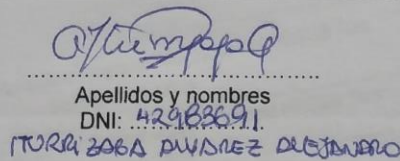 Apellidos y nombres
DNI: 42983691
ITURRIZAGA ALVAREZ ALEJANDRO